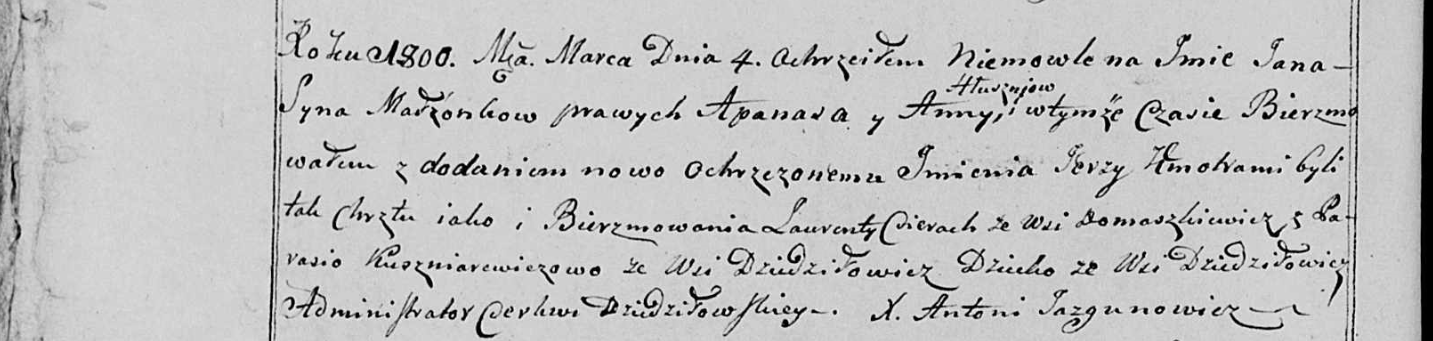 Roku 1800. Mca. Marca Dnia 4. ochrzciłem Niemowle na Jmie Jana
Hłuszniow
Syna Małżonkow prawych Apanasa y Anny, i wtymże Czasie Bierzmo
wałem z dodaniem nowo ochrzczonemu Jmienia Jerzy Kmotrami byli
tak Chrztu iako i Bierzmowania Laurenty Cierach ze Wsi Domaszkiewicz z Pa-
rasio Kuszniarewiczowo ze Wsi Dziedziłowicz Dziecko ze Wsi Dziedziłowicz
Administrator Cerkwi Dziedziłowskiey. X. Antoni Jazgunowicz